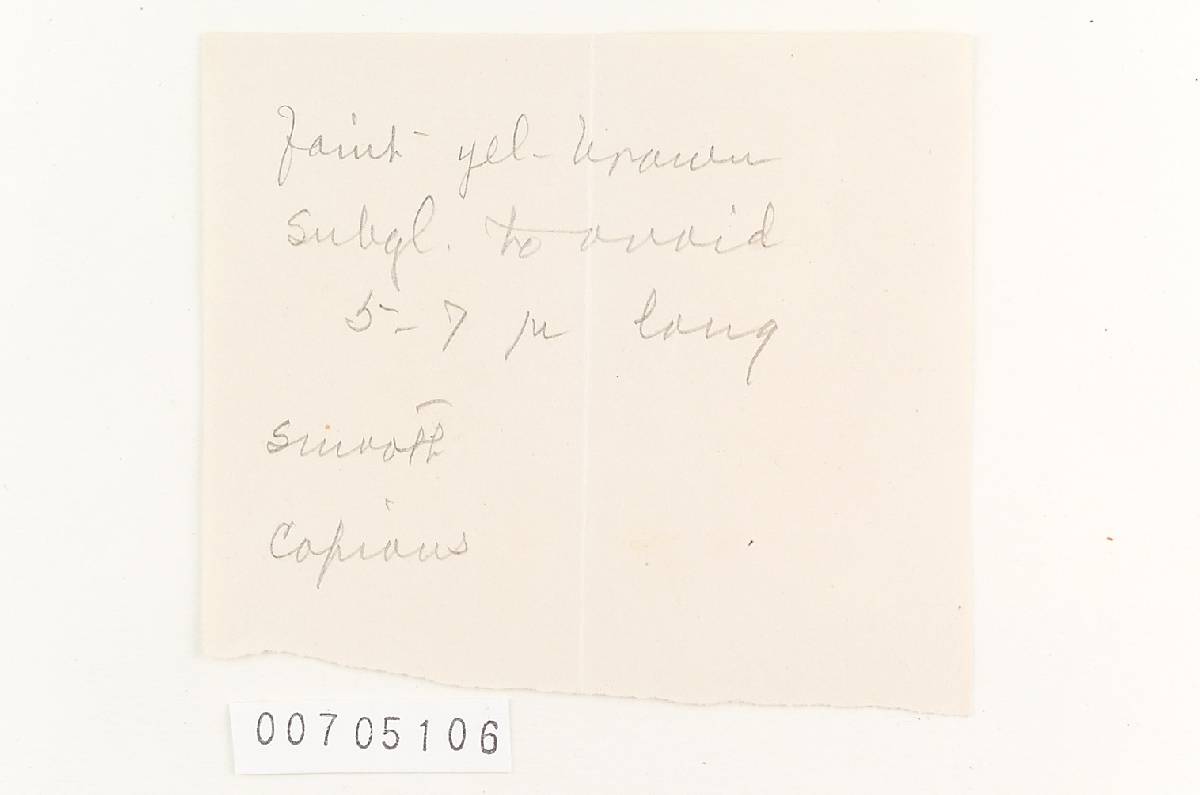 Faint yel-brown
subgl. to ovoid
5-7 µ long
smooth
Copious
00705106